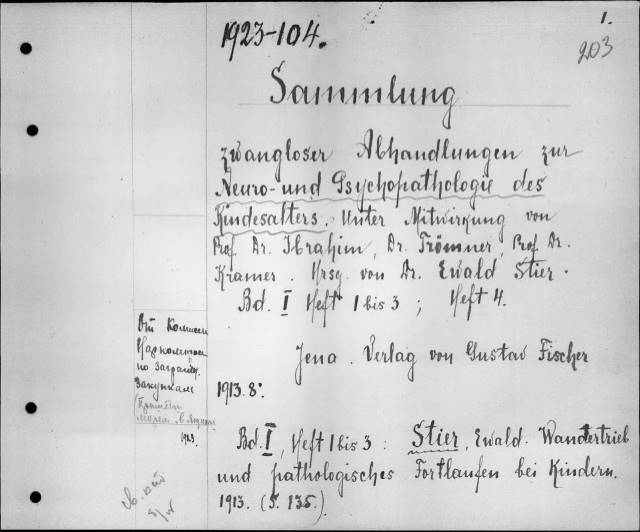 1.
1923-104.
203
Sammlung
zwangloser Abhandlungen zur
Neuro- und Psychopathologie des
Kindesalters. Unter Mitwirkung von
Prof. Dr. Ibrahim, Dr. Trömner, Prof Dr.
Kramer. Hrsg. von Dr. Ewald Stier.
Bd. I Heft 1 bis 3; Heft 4.
Jena. Verlag von Gustav Fischer
1913. 8°.
Bd. I, Heft 1 bis 3: Stier, Ewald. Wandertrieb
und pathologisches Fortlaufen bei Kindern.
1913. (S. 135.)
От Комиссии
по Загранич.
Закупкам
1923.